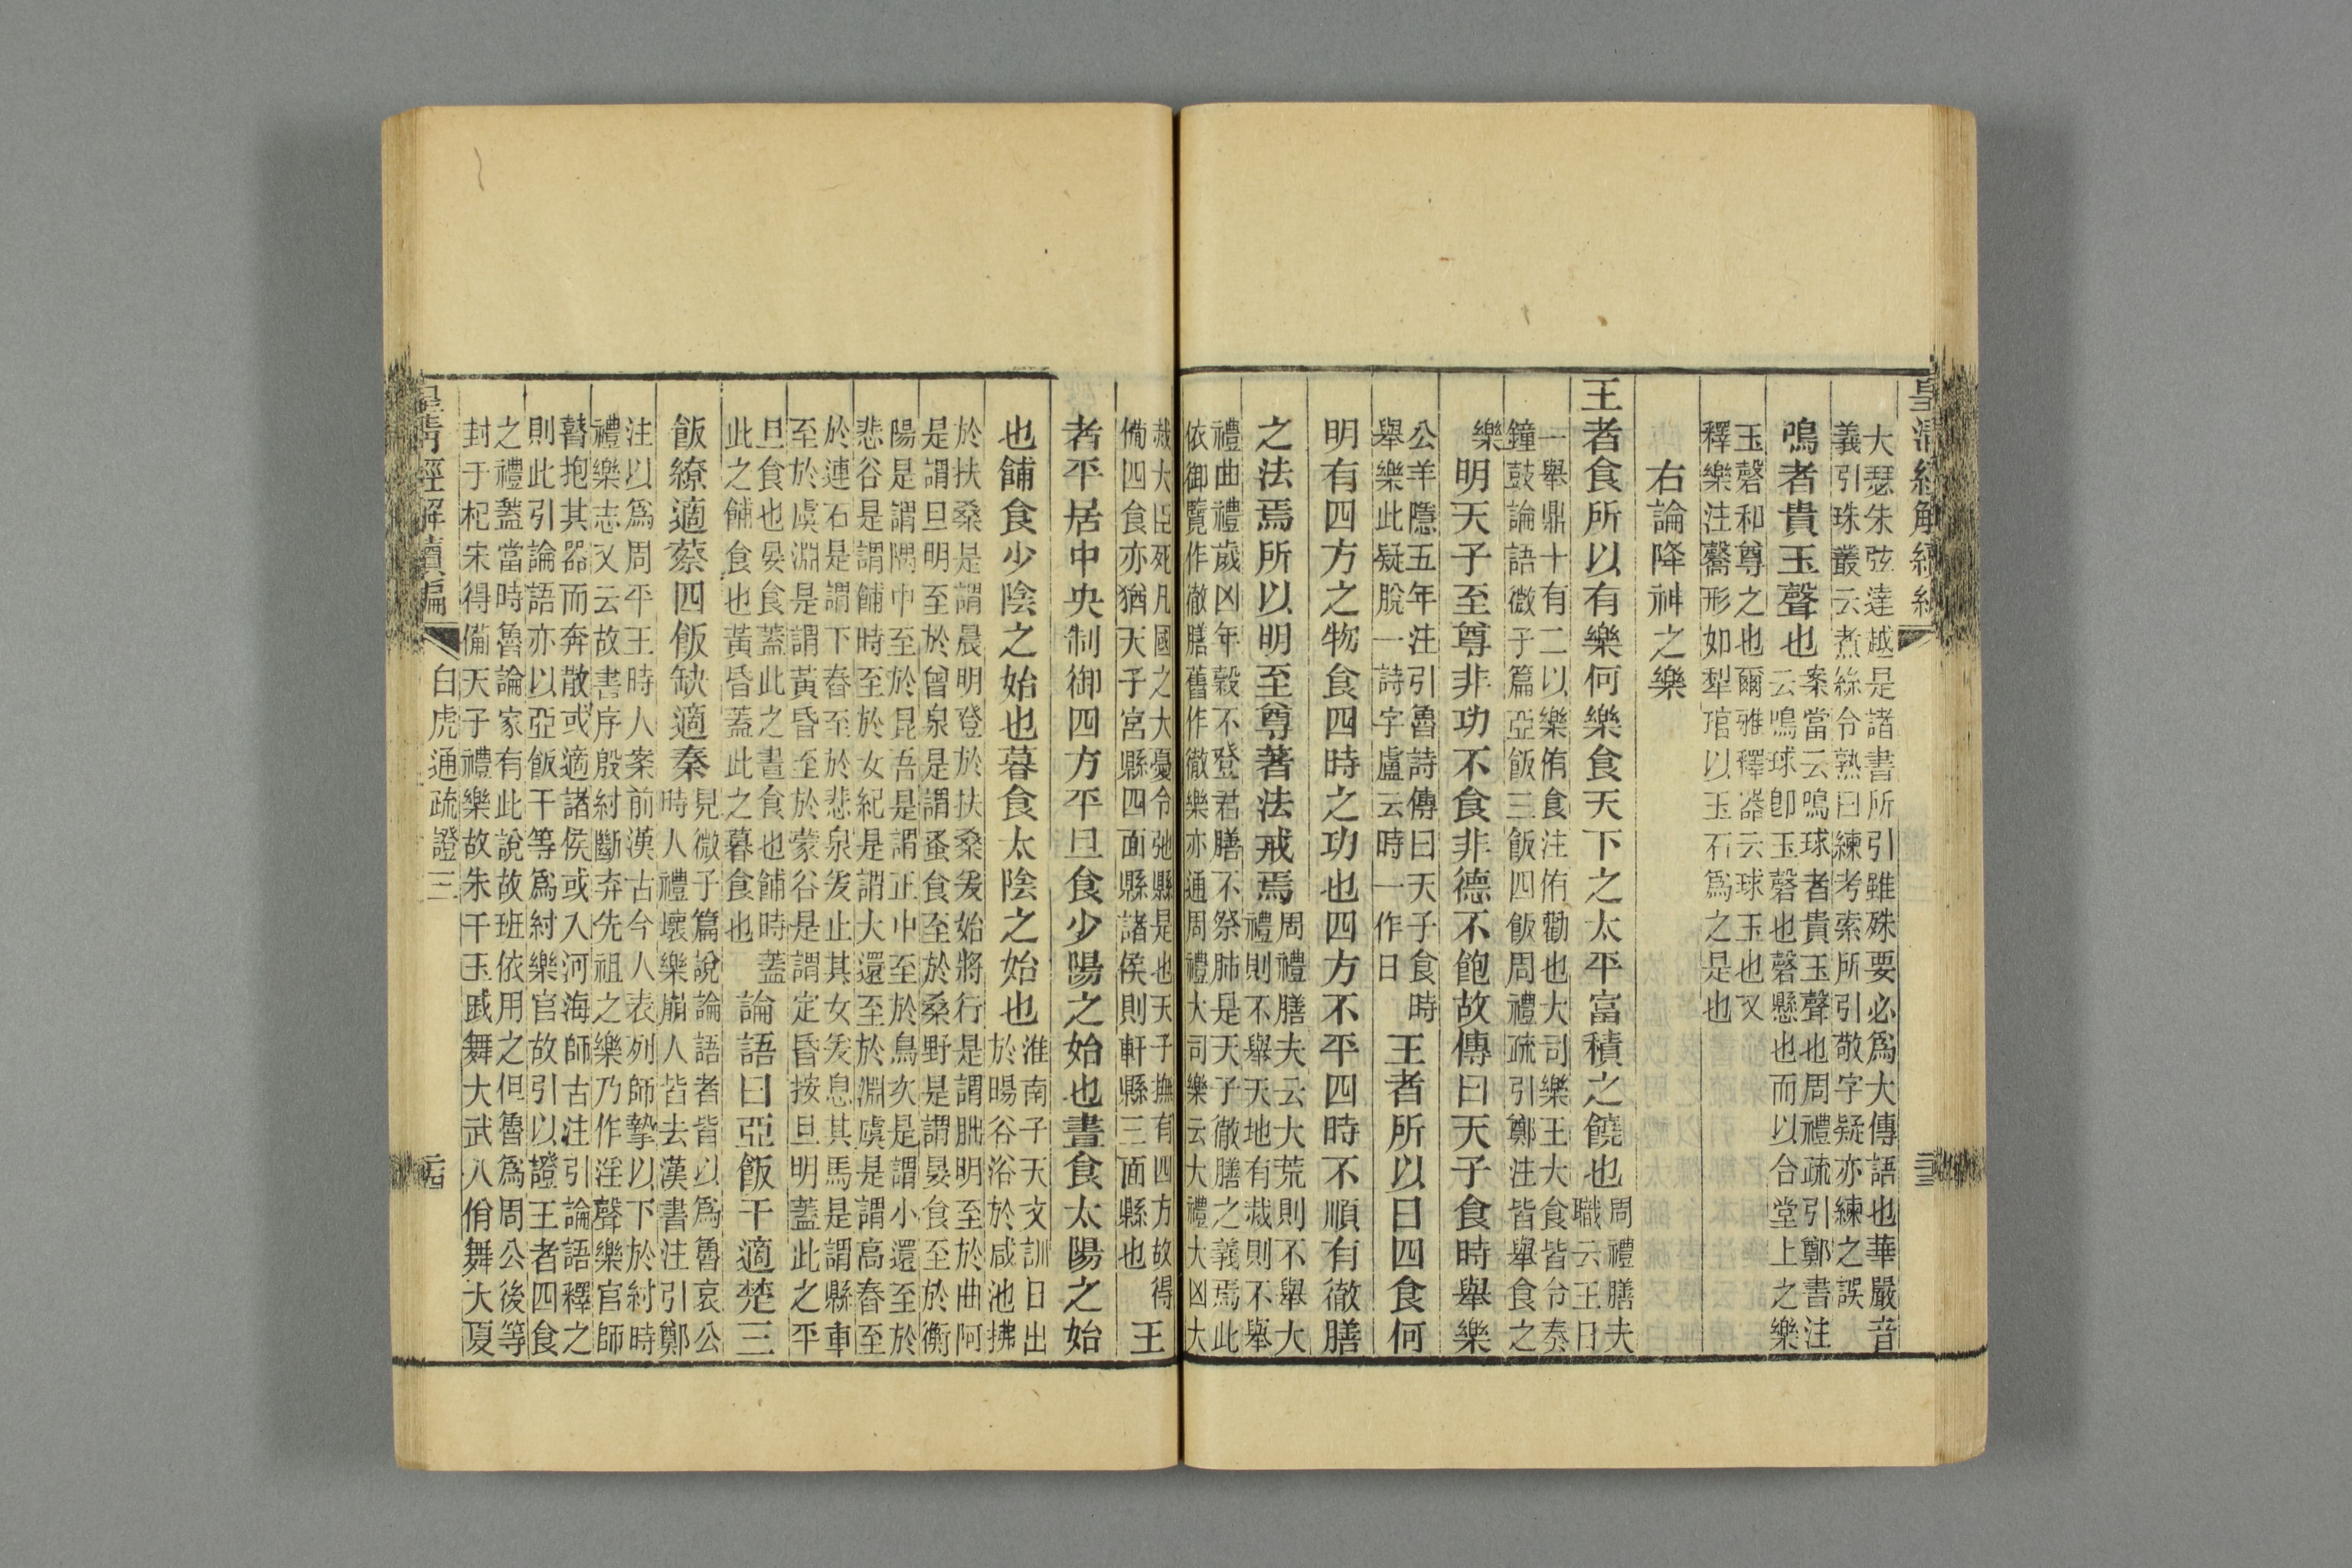 皇清經解續編
大瑟朱弦達越是諸書所引雖殊要必爲大傳語也華嚴音
義引珠叢云煮絲令熟曰練考索所引敬字疑亦練之誤
鳴者貴玉聲也
案當云鳴球者貴玉聲也周禮疏引鄭書注
云鳴球卽玉磬也磬懸也而以合堂上之樂
玉磬和尊之也爾雅釋器云球玉也又
釋樂注毊形如犁琯以玉石爲之是也
右論降神之樂
王者食所以有樂何樂食天下之太平富積之饒也
周禮膳夫
職云王日
一舉鼎十有二以樂侑食注侑勸也大司樂王大食皆令奏
鐘鼓論語微子篇亞飯三飯四飯周禮疏引鄭注皆舉食之
樂
明天子至尊非功不食非德不飽故傳曰天子食時舉樂
公羊隱五年注引魯詩傳曰天子食時
舉樂此疑脫一詩字盧云時一作日
王者所以日四食何
明有四方之物食四時之功也四方不平四時不順有徹膳
之法焉所以明至尊著法戒焉
周禮膳夫云大荒則不舉大
禮則不舉天地有烖則不舉
禮曲禮歲凶年穀不登君膳不祭肺是天子徹膳之義焉此
依御覽作徹膳舊作徹樂亦通周禮大司樂云大禮大凶大
烖大臣死凡國之大憂令弛縣是也天子撫有四方故得
備四食亦猶天子宮縣四面縣諸侯則軒縣三面縣也
王
者平居中央制御四方平旦食少陽之始也晝食太陽之始
也餔食少陰之始也暮食太陰之始也
淮南子天文訓日出
於暘谷浴於咸池拂
於扶桑是謂晨明登於扶桑爰始將行是謂朏明至於曲阿
是謂旦明至於曾泉是謂蚤食至於桑野是謂晏食至於衡
陽是謂隅中至於昆吾是謂正中至於鳥次是謂小還至於
悲谷是謂餔時至於女紀是謂大還至於淵虞是謂高舂至
於連石是謂下舂至於悲泉爰止其女爰息其馬是謂縣車
至於虞淵是謂黃昏至於蒙谷是謂定昏按旦明蓋此之平
旦食也晏食蓋此之晝食也餔時蓋
此之餔食也黃昏蓋此之暮食也
論語曰亞飯干適楚三
飯繚適蔡四飯缺適秦
見微子篇說論語者皆以爲魯哀公
時人禮壞樂崩人皆去漢書注引鄭
注以爲周平王時人案前漢古今人表列師摯以下於紂時
禮樂志又云故書序殷紂斷弃先祖之樂乃作淫聲樂官師
瞽抱其器而奔散或適諸侯或入河海師古注引論語釋之
則此引論語亦以亞飯干等爲紂樂官故引以證王者四食
之禮蓋當時魯論家有此說故班依用之但魯爲周公後等
封于杞宋得備天子禮樂故朱干玉戚舞大武八佾舞大夏
皇清經解續編
白虎通疏證三